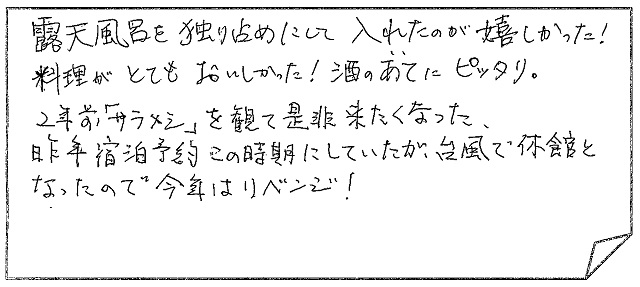 露天風呂を独り占めにして入れたのが嬉しかった!
料理がとてもおいしかった!酒のあてにピッタリ。
2年前「サラメシ」を観て是非来たくなった、
昨年宿泊予約この時期にしていたが、台風で休館と
なったので今年はリベンジ!